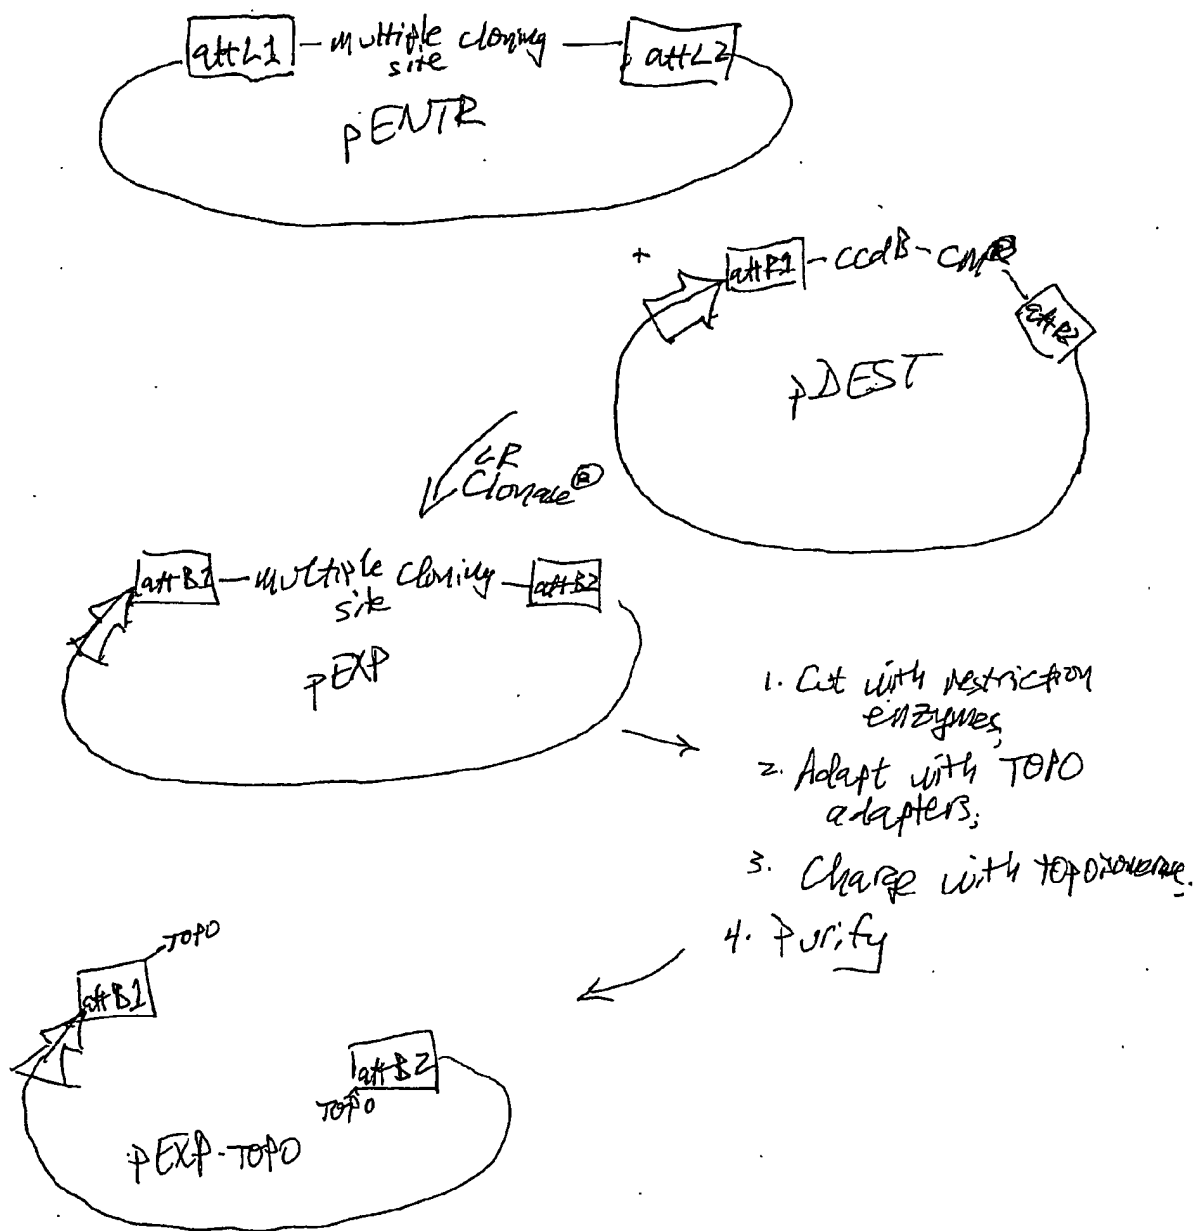 attL1 - multiple cloning — attL2
site
pENTR
+ attR1 - ccdB - CmR
attR2
pDEST
LR
Clonase®
attB1 — multiple cloning — attB2
site
pEXP
1. Cut with restriction
enzymes;
2. Adapt with TOPO
adapters;
3. Charge with topoisomerase.
4. Purify
TOPO
attB1
attB2
TOPO
pEXP-TOPO